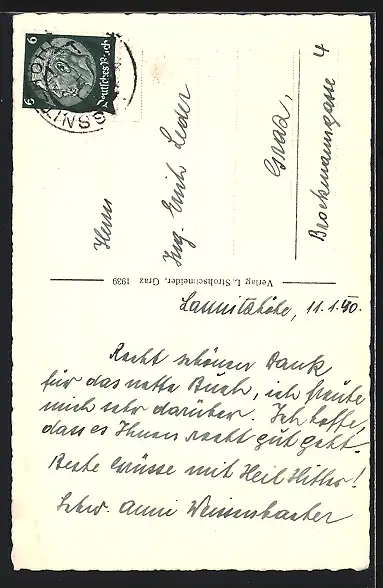 Laßnitzhöhe, 11.1.40.
Recht schönen Dank
für das nette Buch, ich freute
mich sehr darüber. Ich hoffe,
dass es Ihnen recht gut geht.
Beste Grüsse mit Heil Hitler!
Schw. Anni
Herrn
Ing. Erich Leder
Graz,
Brockmanngasse 4
Verlag L. Strohschneider, Graz 1939
Deutsches Reich
6 6